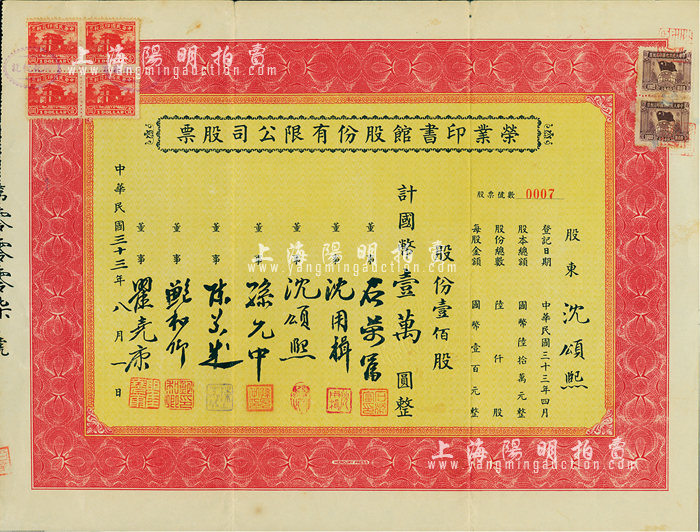 榮業印書館股份有限公司股票
股票號數 0007
股東 沈頌熙
登記日期 中華民國三十三年四月
股本總額 國幣陸拾萬元整
股份總數 陸仟股
每股金額 國幣壹百元整
股份壹佰股
計國幣壹萬圓整
董事
董事 沈用楫
董事 沈頌熙
董事 孫允中
董事
董事 鮑和卿
董事 瞿堯康
中華民國三十三年八月一日
第零零零柒號
1 DOLLAR
1 DOLLAR
1 DOLLAR
1 DOLLAR
MERCURY PRESS
上海陽明拍賣
www.yangmingauction.com
上海陽明拍賣
www.yangmingauction.com
上海陽明拍賣
www.yangmingauction.com